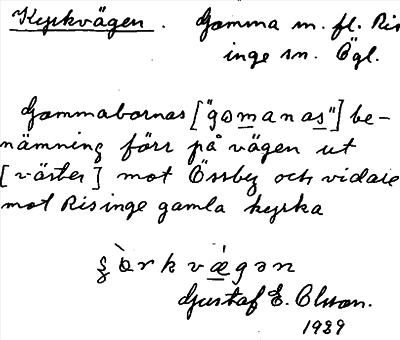 Kyrkvägen. Gamma m. fl. Ris
inge sn. Ögl.
Gammabornas ["gamanas"] be-
nämning förr på vägen ut
[väster] mot Össby och vidare
mot Risinge gamla kyrka
ʂàrkvǽgən
Gustaf E. Olsson.
1929